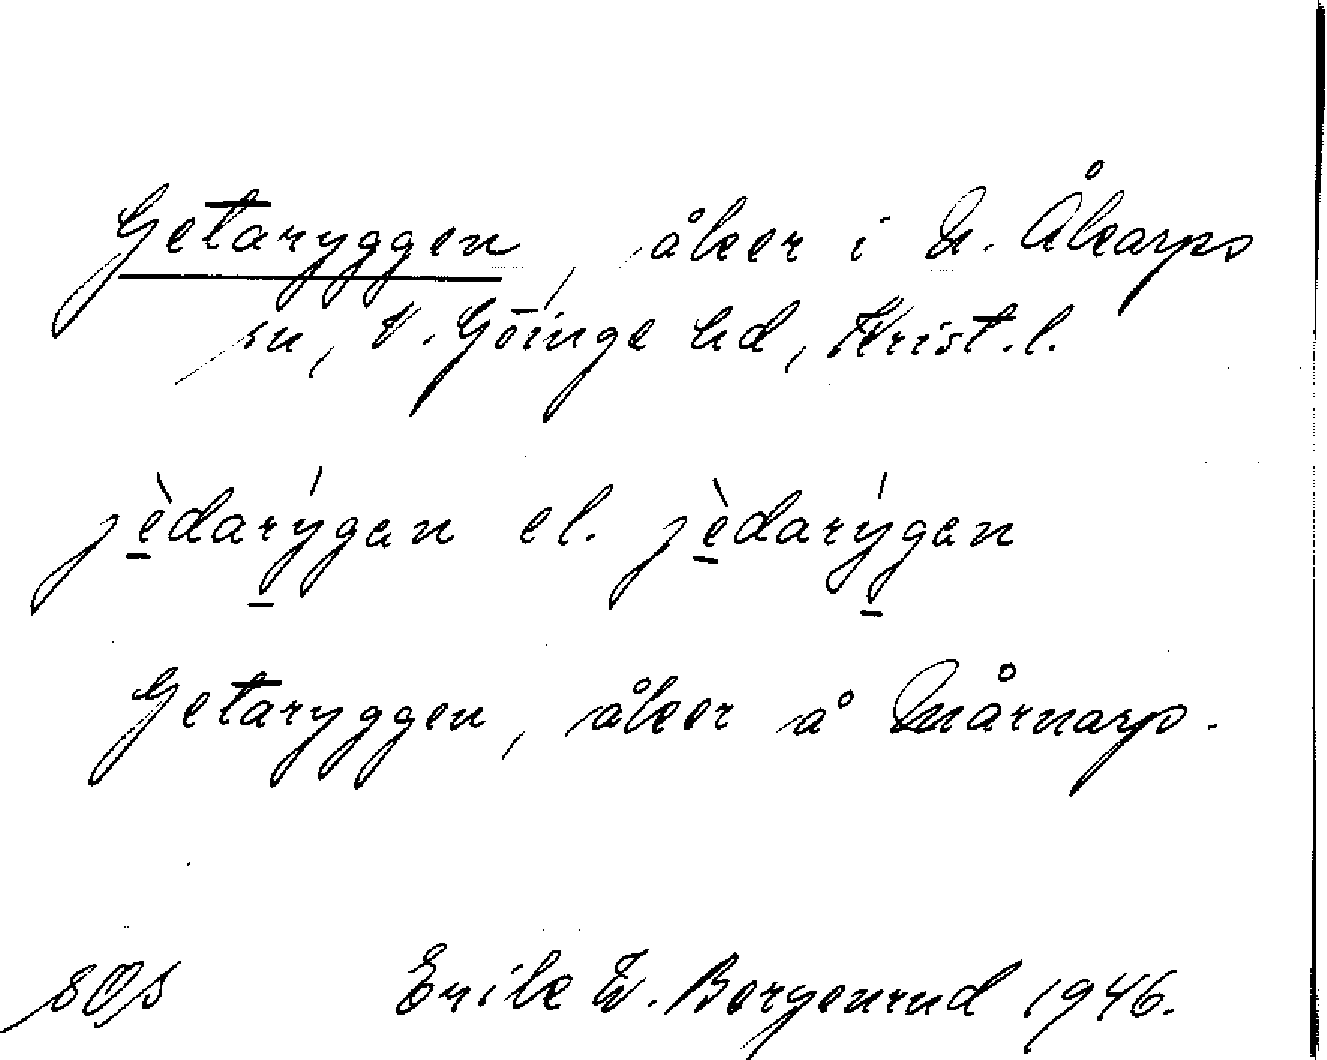 Getaryggen, åker i N. Åkarps
sn, V. Göinge hd, Krist. l.
jèdarýgan el. jèdarýgan
Getaryggen, åker å Mårnarp.
Erik W. Bergenrud 1946.